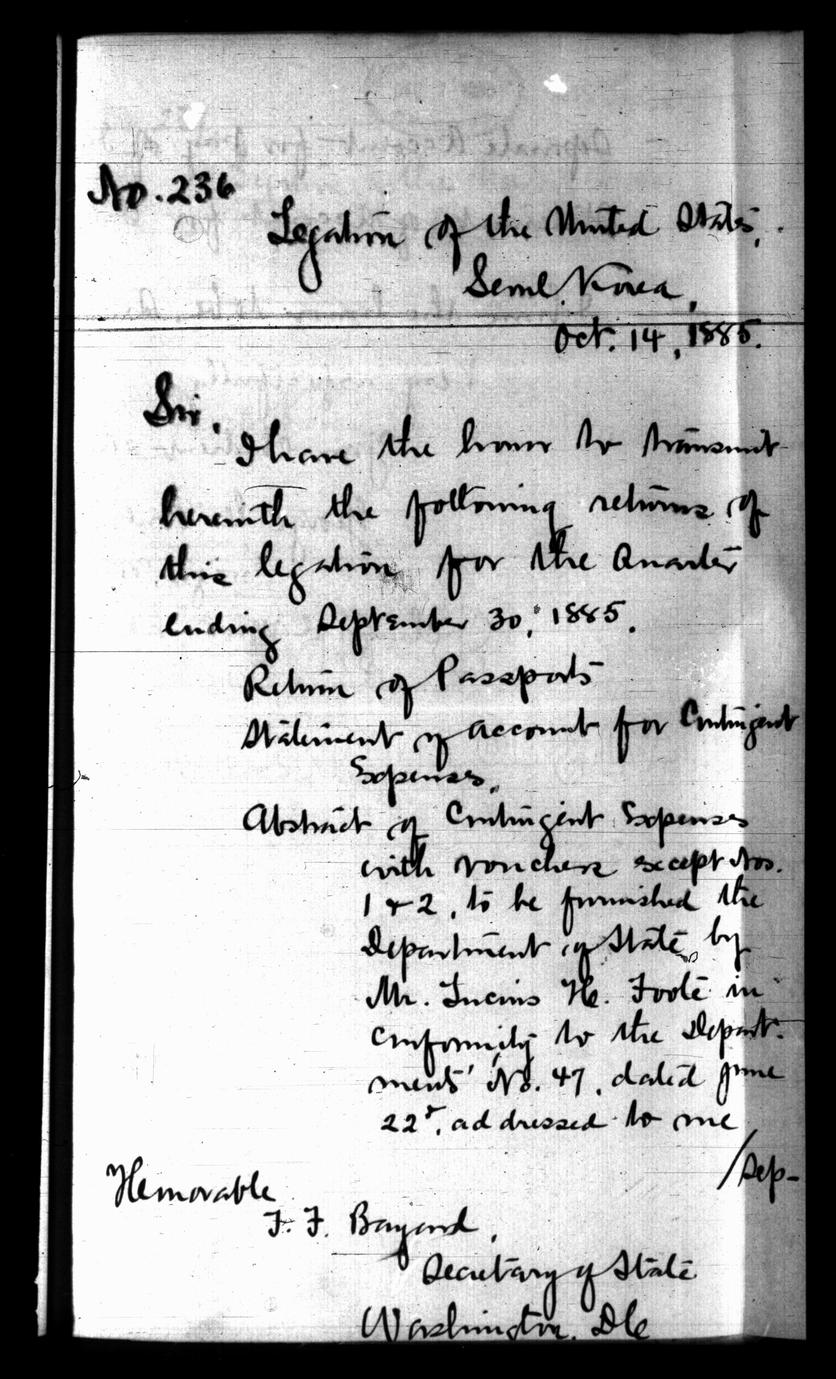 No. 236
Legation of the United States,
Seoul, Korea,
Oct. 14, 1885.
Sir,
I have the honor to transmit
herewith the following returns of
this legation for the Quarter
ending September 30, 1885.
Return of Passports
Statement of Account for Contingent
Expenses.
Abstract of Contingent Expenses
with vouchers except Nos.
1 & 2, to be furnished the
Department of State, by
Mr. Lucius H. Foote in
conformity to the Depart-
ments' No. 47, dated June
22d, addressed to me
/Sep-
Honorable
T. F. Bayard,
Secretary of State
Washington, D.C.